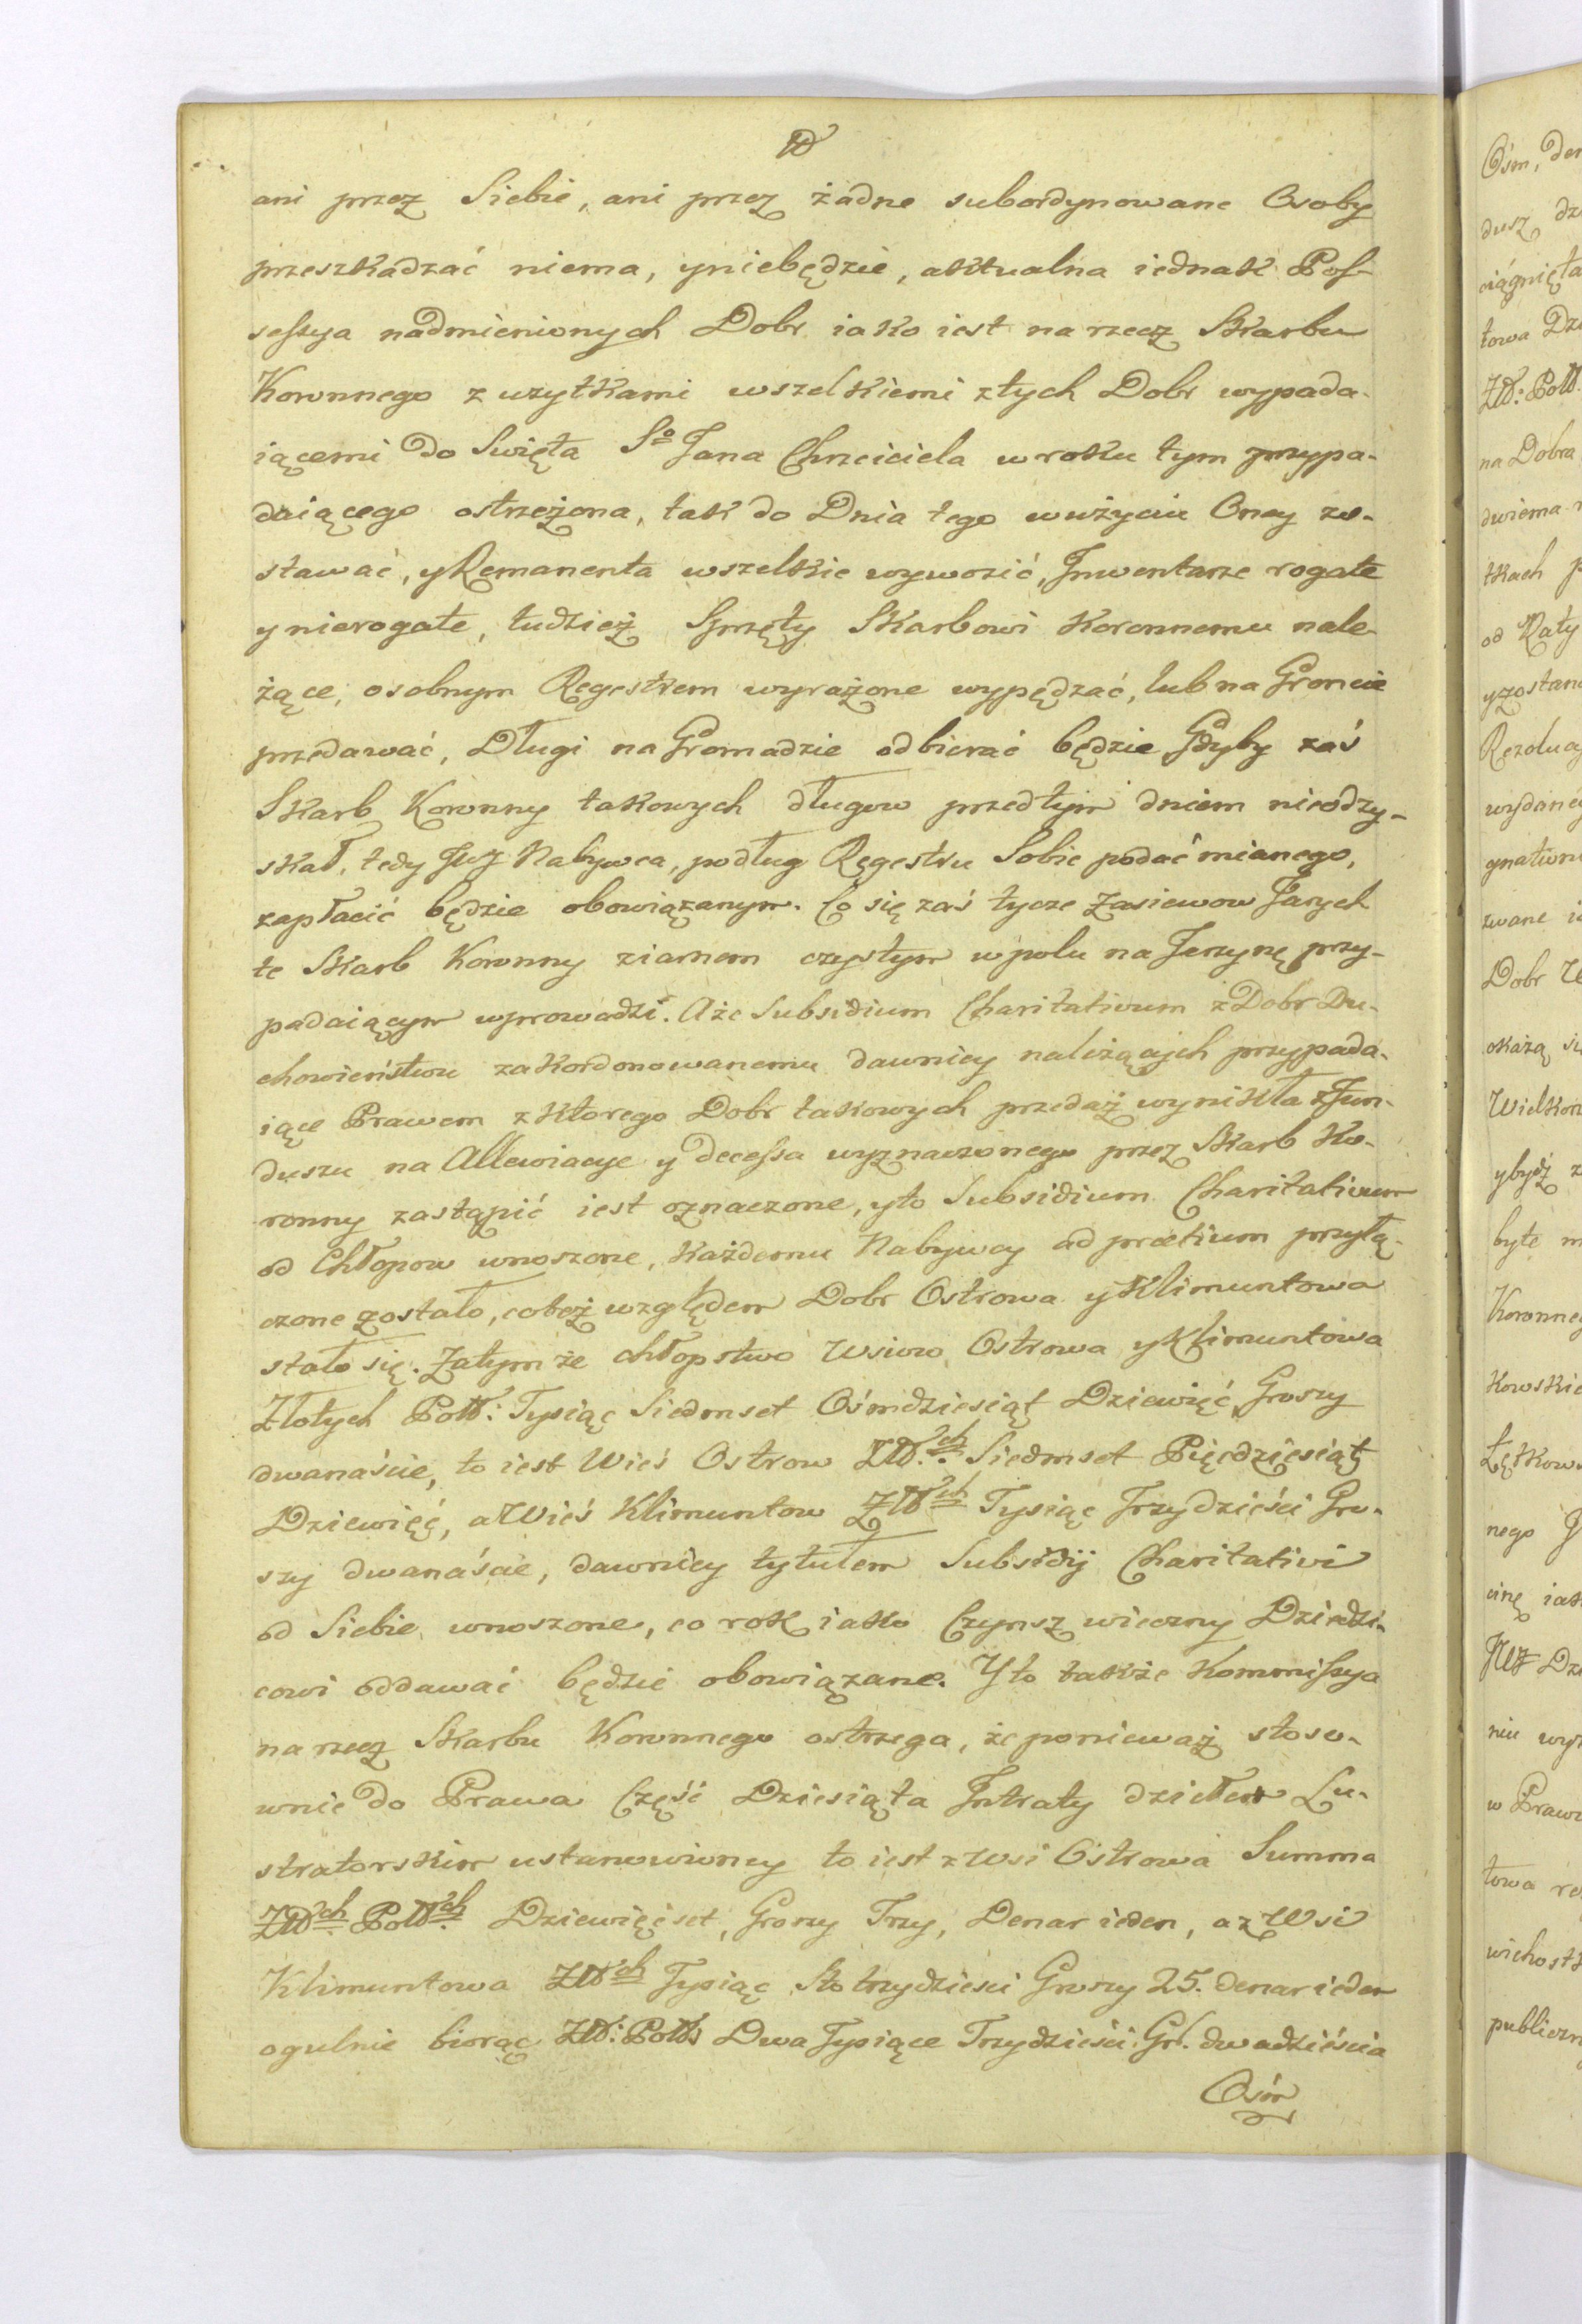 ani przez Siebie, ani przez żadne subordynowane Osoby
przeszkadzać niema, yniebędzie, aktualna iednak Pos-
sessya nadmienionych Dobr iako iest na rzecz Skarbu
Koronnego z uzytkami wszelkiemi z tych Dobr wypada-
iącemi do Swięta So Jana Chrzciciela w roku tym przypa-
daiącego ostrzeżona, tak do Dnia tego w użyciu Oney zo-
stawać, y Remanenta wszelkie wywozić, Inwentarze rogate
y nierogate, tudzież Sprzęty Skarbowi Koronnemu nale-
żące, osobnym Regestrem wyrażone wypędzać, lub na Groncie
przedawać, Długi na Gromadzie odbierać będzie Gdyby zaś
Skarb Koronny takowych długow przed tym dniem nieodzy-
skał, tedy JWJ Nabywca, podług Regestru Sobie podać mianego,
zapłacić będzie obowiązanym. Co się zaś tycze Zasiewow Jarych
te Skarb Koronny ziarnem czystym w polu na Jerzynę przy-
padaiącym wprowadzi. Aże Subsidium Charitativum z Dobr Du-
chowieństwu zakordonowanemu dawniey należących przypada-
iące Prawem z ktorego Dobr takowych przedaż wynikła z Fun-
duszu na Allewiacye y decessa wyznaczonego przez Skarb Ko-
ronny zastąpić iest oznaczone, yto Subsidium Charitativum
od Chłopow wnoszone, każdemu Nabywcy ad praetium przyłą-
czone zostało, co też względem Dobr Ostrowa y Klimuntowa
stało się. Zatym że chłopstwo Wsiow Ostrowa y Klimuntowa
Złotych Poll: Tysiąc Siedmset Ośmdziesiąt Dziewięć Groszy
dwanaście, to iest Wieś Ostrow Złł.ch Siedmset Pięćdziesiąt
Dziewięć, a Wieś Klimuntow Złłch Tysiąc Trzydzieści Gro-
szy dwanaście, dawniey tytułem Subsidij Charitativi
od Siebie wnoszone, co rok iako Czynsz wieczny Dziedzi-
cowi oddawać będzie obowiązane. Yto także Kommissya
na rzecz Skarbu Koronnego ostrzega, że ponieważ stoso-
wnie do Prawa Część Dziesiąta Intraty dziełem Lu-
stratorskim ustanowioney to iest z Wsi Ostrowa Summa
Złłch Pollch Dziewięćset, Groszy Trzy, Denar ieden, a z Wsi
Klimuntowa Złłch Tysiąc Sto trzydzieści Groszy 25. Denar ieden
ogulnie biorąc Złł: Polls Dwa Tysiące Trzydzieści Gr. dwadzieścia
Ośm
Ośm, den
dusz
ciągnięta
towa Dzi
Złł: Poll
na Dobra
dwiema
tkach
od Raty
yzostan
Rezoluc
wydaney
zwane
Dobr
okażą się
Wielkor
ybydź z
byłe
Koronneg
kowskie
nego
cinę iak
JWJ Dz
niu wy
w Praw
towa
publiczn